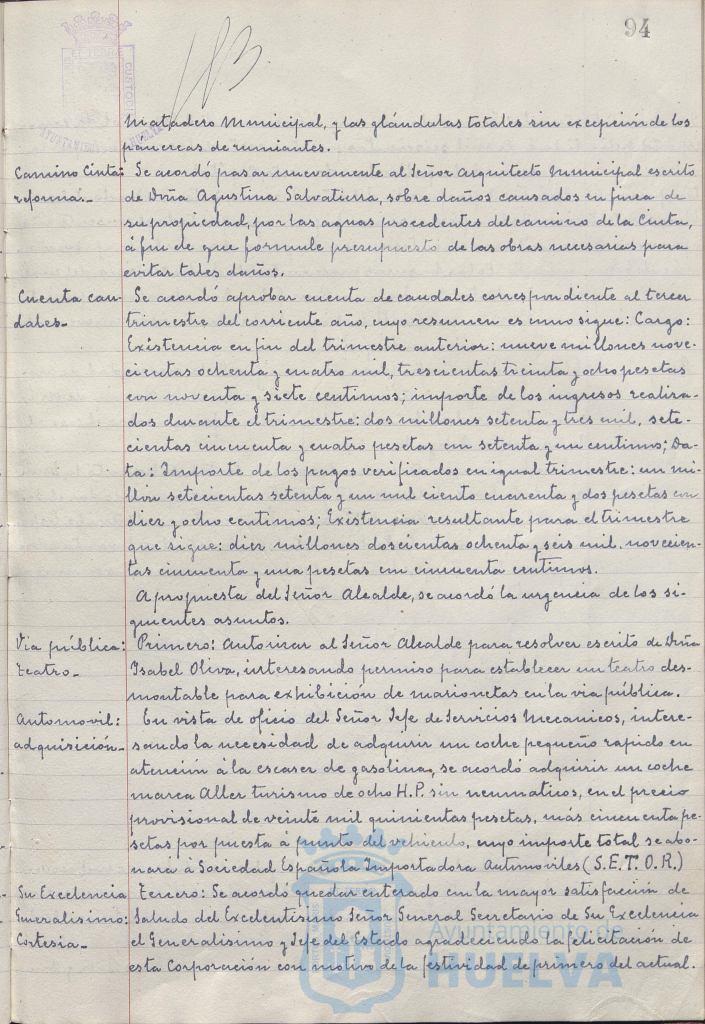 94
Matadero Municipal, y las glándulas totales sin excepción de los
páncreas de rumiantes.
Camino Cinta: Se acordó pasar nuevamente al Señor Arquitecto Municipal escrito
reforma.- de Dña Agustina Salvatierra, sobre daños causados en finca de
su propiedad, por las aguas procedentes del camino de la Cinta,
á fin de que formule presupuesto de las obras necesarias para
evitar tales daños.
Cuenta cau- Se acordó aprobar cuenta de caudales correspondiente al tercer
dales- trimestre del corriente año, cuyo resumen es como sigue: Cargo:
Existencia en fin del trimestre anterior: nueve millones nove-
cientas ochenta y cuatro mil, trescientas treinta y ocho pesetas
con noventa y siete centimos; importe de los ingresos realiza-
dos durante el trimestre: dos millones setenta y tres mil, sete-
cientas cincuenta y cuatro pesetas con setenta y un centimos; Da-
ta: Importe de los pagos verificados en igual trimestre: un mi-
llón setecientas setenta y un mil ciento cuarenta y dos pesetas con
diez y ocho centimos; Existencia resultante para el trimestre
que sigue: diez millones doscientas ochenta y seis mil novecien-
tas cincuenta y una pesetas con cincuenta centimos.
A propuesta del Señor Alcalde, se acordó la urgencia de los si-
guientes asuntos.
Via pública: Primero: Autorizar al Señor Alcalde para resolver escrito de Dña
teatro- Isabel Oliva, interesando permiso para establecer un teatro des-
montable para exhibición de marionetas en la via pública.
Automovil: En vista de oficio del Señor Jefe de Servicios Mecanicos, intere-
adquisición- sando la necesidad de adquirir un coche pequeño rapido en
atención á la escasez de gasolina, se acordó adquirir un coche
marca Aller turismo de ocho H.P. sin neumaticos, en el precio
provisional de veinte mil quinientas pesetas, más cincuenta pe-
setas por puesta á punto del vehiculo, cuyo importe total se abo-
nará á Sociedad Española Importadora Automoviles (S.E.T.O.R.)
Su Excelencia Tercero: Se acordó quedar enterado con la mayor satisfacción de
Generalisimo: Saludo del Excelentisimo Señor General Secretario de Su Excelencia
Cortesia- el Generalisimo y Jefe del Estado agradeciendo la felicitación de
esta Corporación con motivo de la festividad de primero del actual.
Ayuntamiento de
HUELVA